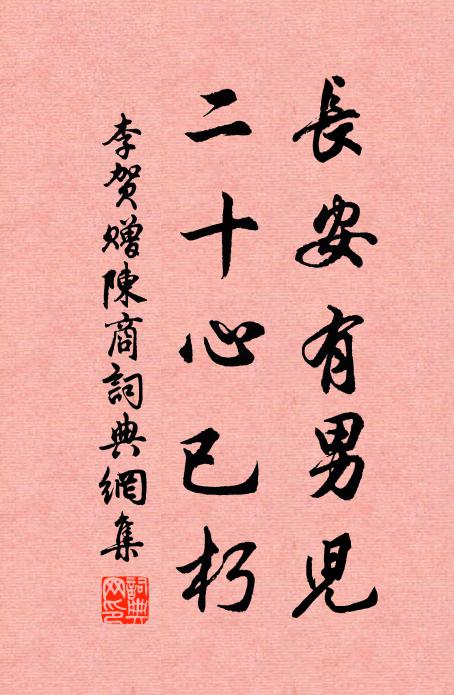 長安有男児
二十心已朽
李贺贈陳商詞典網集
詞典网印